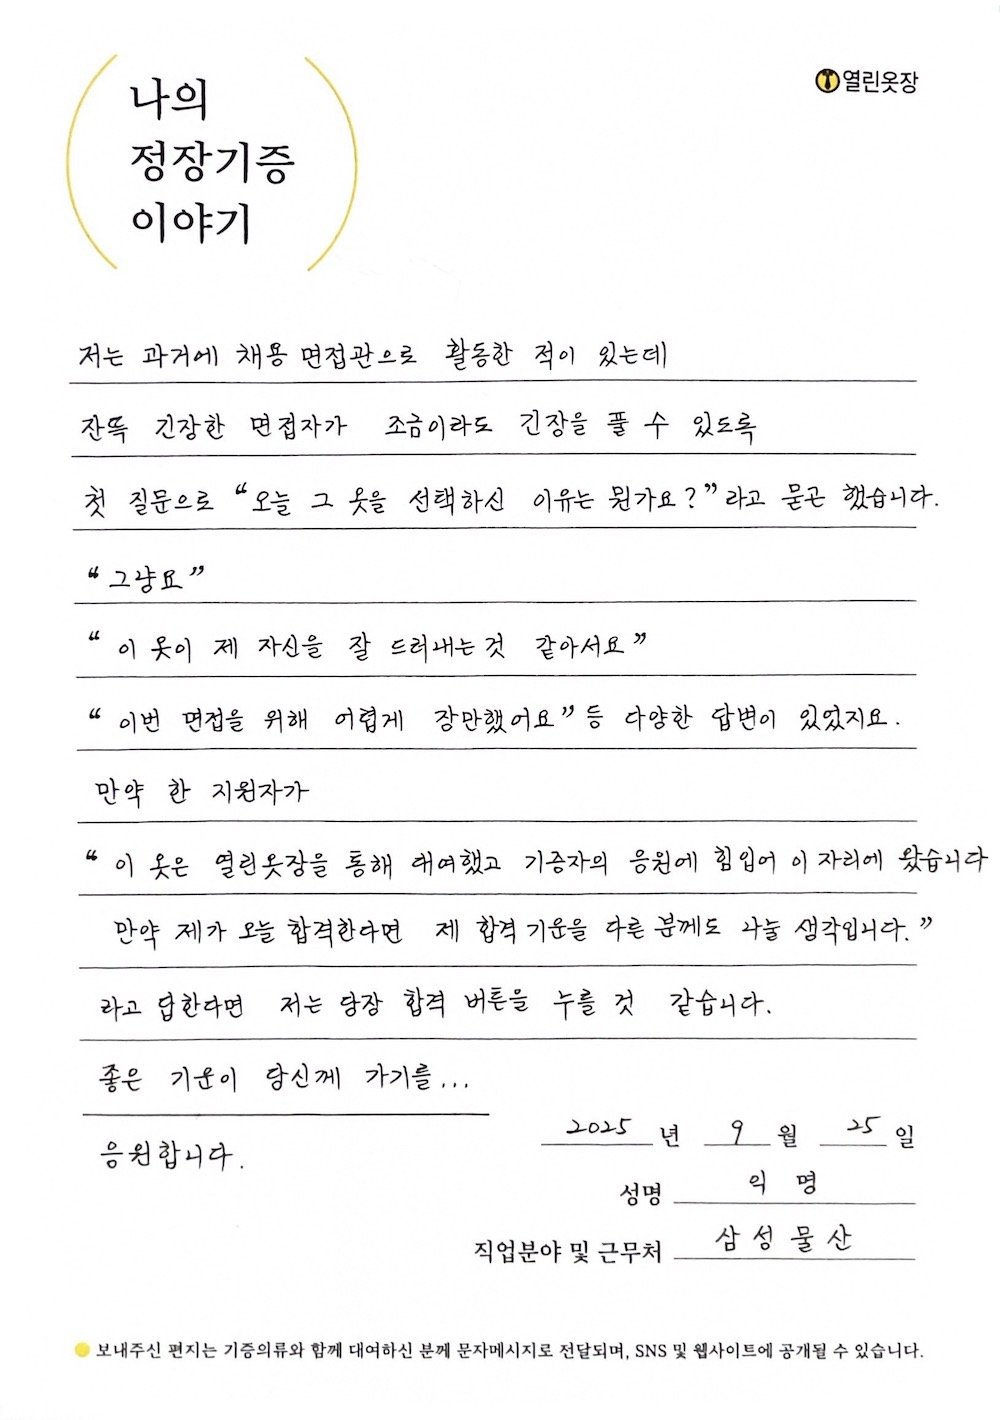 나의
정장기증
이야기
열린옷장
저는 과거에 채용 면접관으로 활동한 적이 있는데
잔뜩 긴장한 면접자가 조금이라도 긴장을 풀 수 있도록
첫 질문으로 “오늘 그 옷을 선택하신 이유는 뭔가요?”라고 묻곤 했습니다.
“그냥요”
“이 옷이 제 자신을 잘 드러내는 것 같아서요”
“이번 면접을 위해 어렵게 장만했어요”등 다양한 답변이 있었지요.
만약 한 지원자가
“이 옷은 열린옷장을 통해 대여했고 기증자의 응원에 힘입어 이 자리에 왔습니다
만약 제가 오늘 합격한다면 제 합격 기운을 다른 분께도 나눌 생각입니다.”
라고 답한다면 저는 당장 합격 버튼을 누를 것 같습니다.
좋은 기운이 당신께 가기를...
응원합니다.
2025 년 9 월 25 일
성명 익명
직업분야 및 근무처 삼성물산
보내주신 편지는 기증의류와 함께 대여하신 분께 문자메시지로 전달되며, SNS 및 웹사이트에 공개될 수 있습니다.